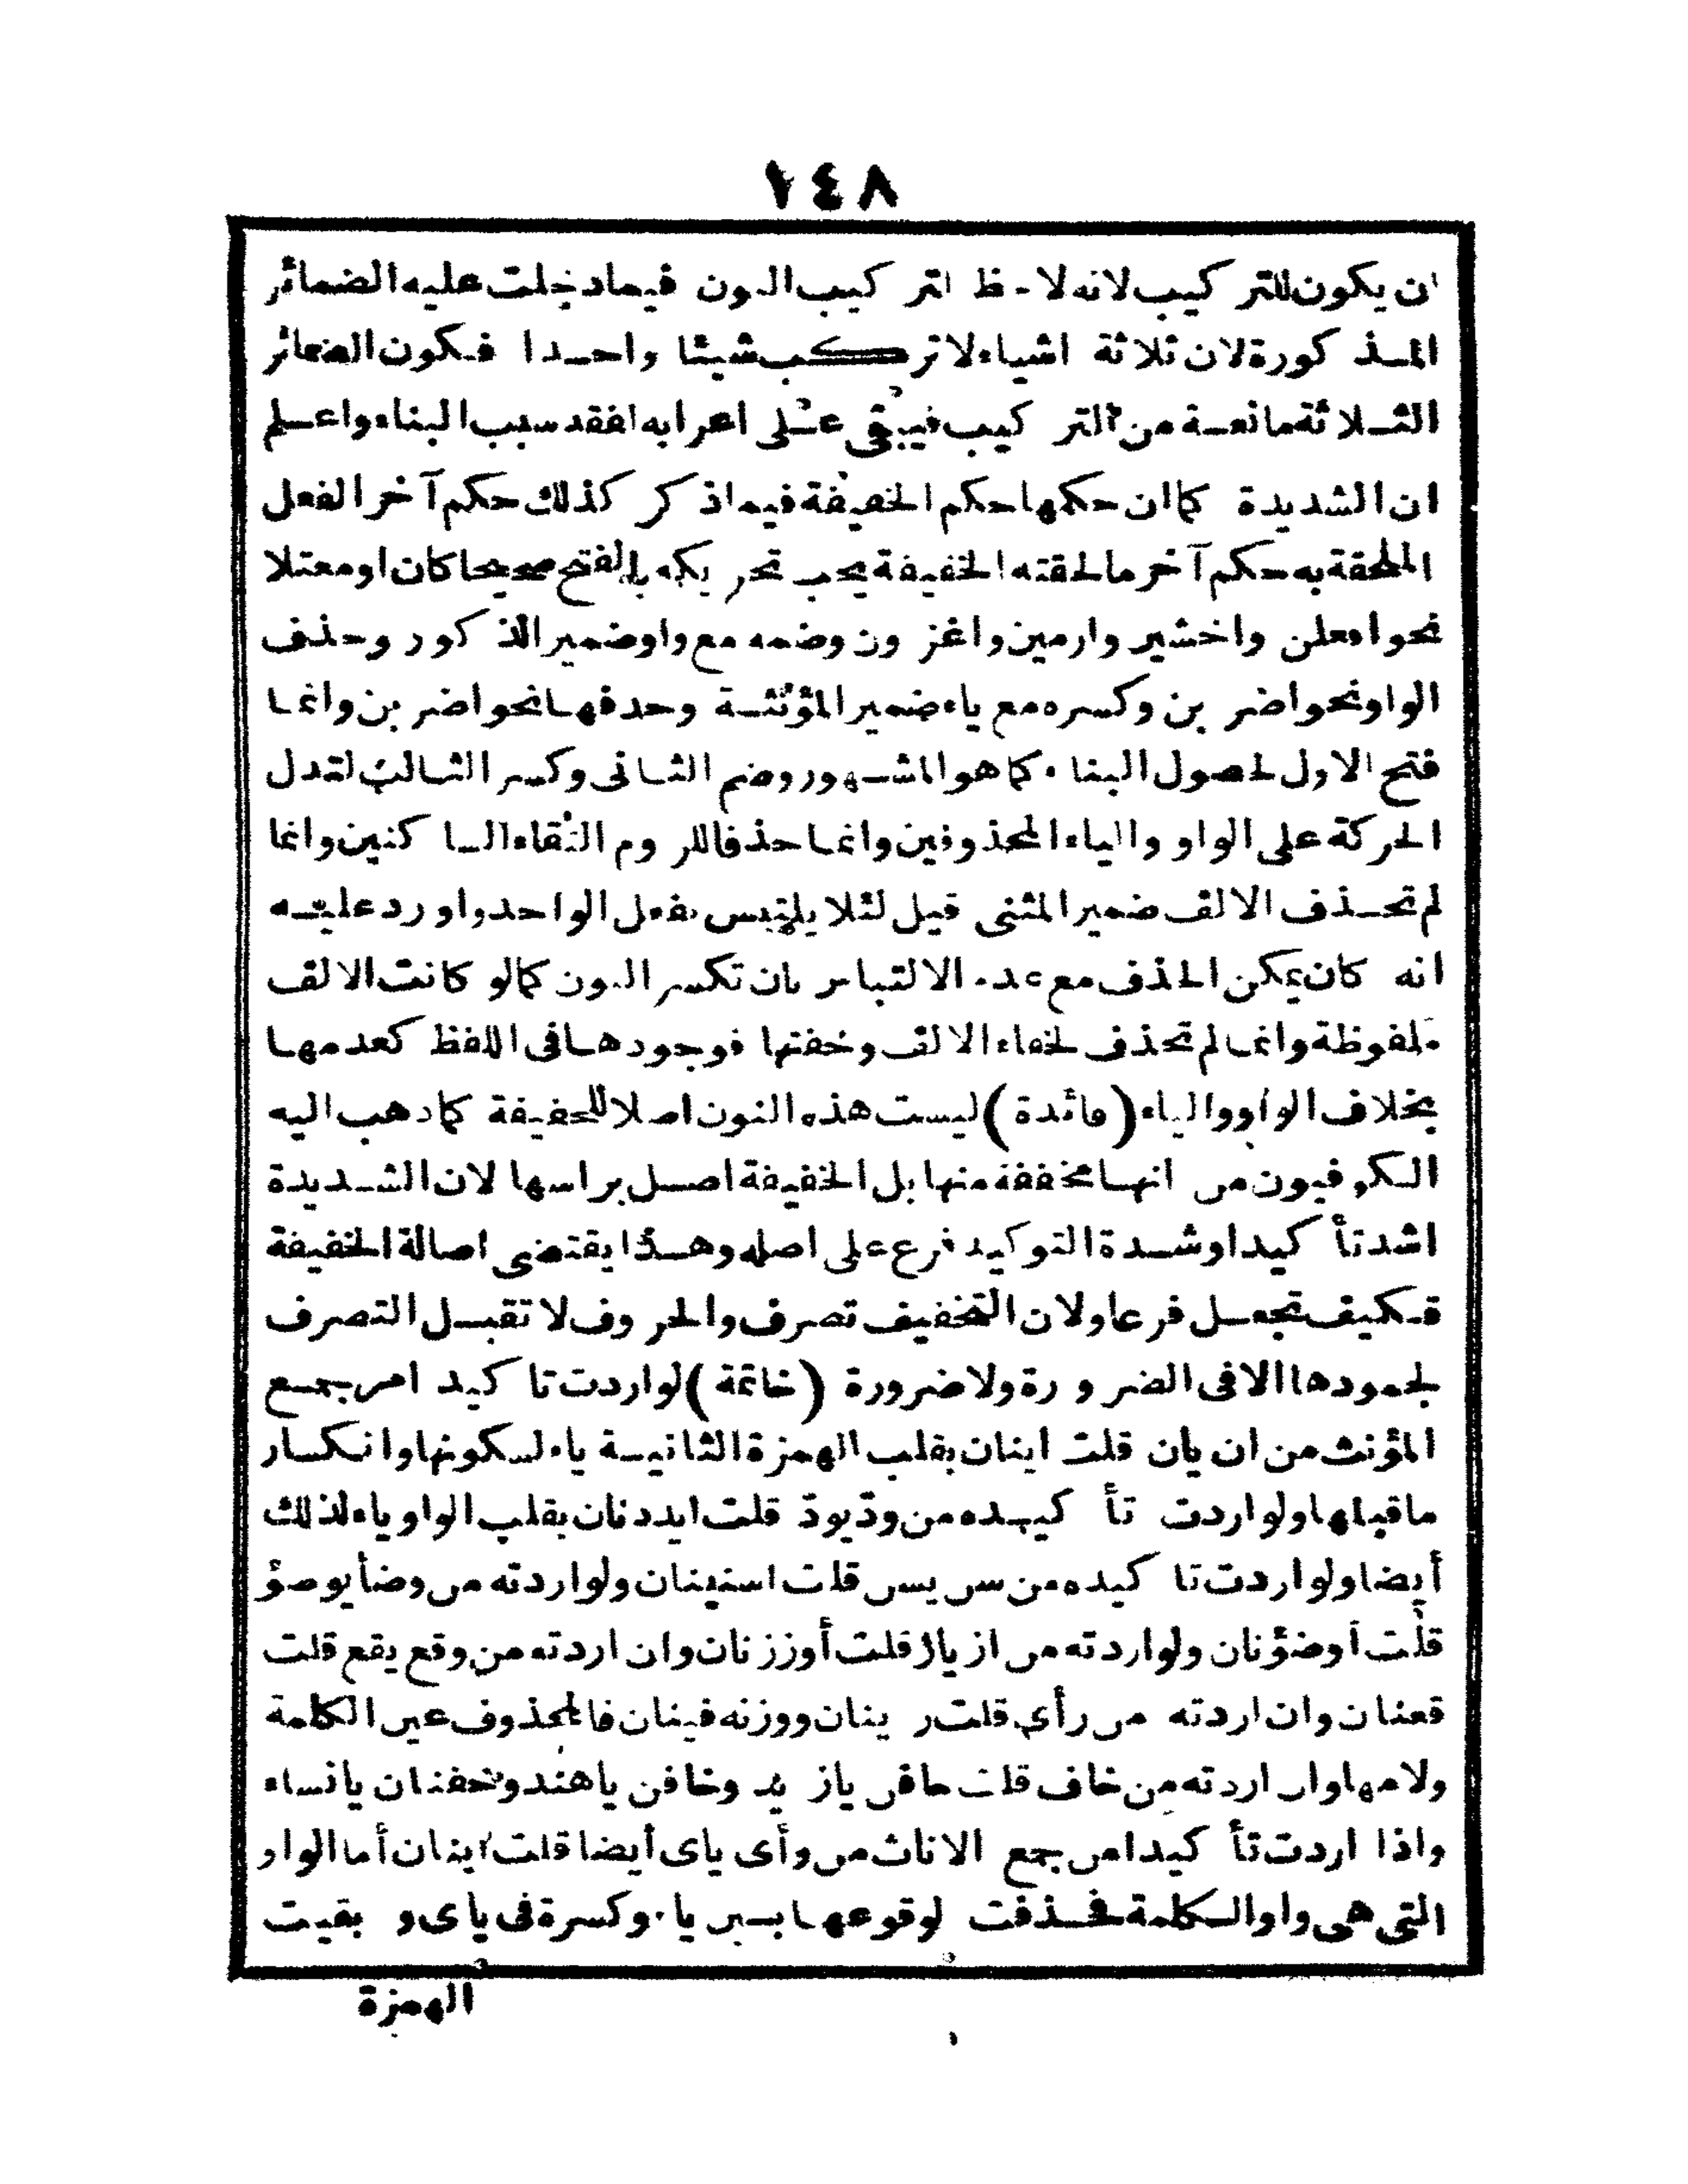 ١٤٨
ان يكون للتركيب لانه لاحظ لتركيب النون فيما دخلت عليه الضمائر
المذكورة لان ثلاثة اشياء لا تركب شيئا واحدا فكون الضمائر
الثلاثة مانعة من التركيب فيبقى على اعرابه لفقد سبب البناء واعلم
ان الشديدة كما ان حكمها حكم الخفيفة فيما ذكر كذلك حكم آخر الفعل
الملحقة به حكم آخر ما لحقته الخفيفة يجب تحريكه بالفتح صحيحا كان او معتلا
نحو افعلن واخشين وارمين واغزون وضمه مع واو ضمير الذكور وحذف
الواو نحو اضربن وكسره مع ياء ضمير المؤنثة وحذفها نحو اضربن وانما
فتح الاول لحصول البناء كما هو المشهور وضم الثانى وكسر الثالث لتدل
الحركة على الواو والياء المحذوفين وانما حذفا للزوم التقاء الساكنين وانما
لم تحذف الالف ضمير المثنى قيل لئلا يلتبس بفعل الواحد واورد عليه
انه كان يمكن الحذف مع عدم الالتباس بان تكسر النون كما لو كانت الالف
ملفوظة وانما لم تحذف لخفاء الالف وخفتها فوجودها فى اللفظ كعدمها
بخلاف الواو والياء (فائدة) ليست هذه النون اصلا للخفيفة كما ذهب اليه
الكوفيون من انها مخففة منها بل الخفيفة اصل براسها لان الشديدة
اشد تأكيدا وشدة التوكيد فرع على اصله وهذا يقتضى اصالة الخفيفة
فكيف تجعل فرعا ولان التخفيف تصرف والحروف لا تقبل التصرف
لجمودها الا فى الضرورة ولا ضرورة (خاتمة) لو اردت تاكيد امر جمع
المؤنث من ان يان قلت اينان بقلب الهمزة الثانية ياء لسكونها وانكسار
ما قبلها ولو اردت تأكيده من ودّ يودّ قلت ايددنان بقلب الواو ياء لذلك
أيضا ولو اردت تاكيده من سن يسن قلت اسنينان ولو اردته من وضأ يوضؤ
قلت أوضؤنان ولو اردته من از ياز قلت أوززنان وان اردته من وقع يقع قلت
قعنان وان اردته من رأى قلت رينان ووزنه فينان فالمحذوف عين الكلمة
ولامها وان اردته من خاف قلت خافن يا زيد وخافن يا هند وخفنان يا نساء
واذا اردت تأكيد امر جمع الاناث من وأى ياى أيضا قلت اينان أما الواو
التى هى واو الكلمة فحذفت لوقوعها بين ياء وكسرة فى ياى و بقيت
الهمزة